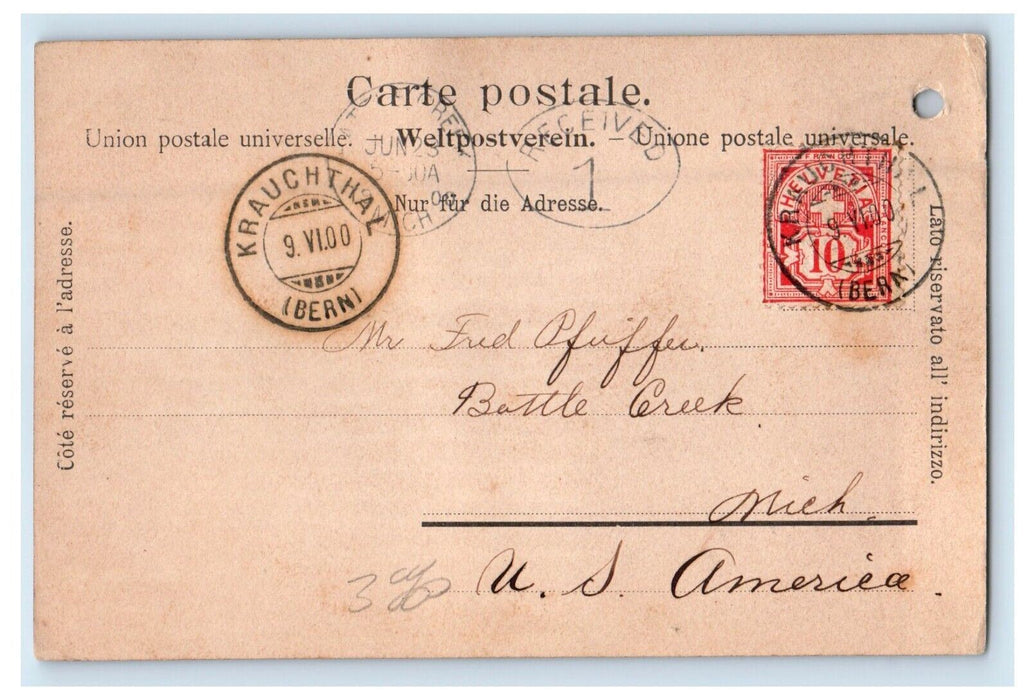 Carte postale.
Union postale universelle. – Weltpostverein. – Unione postale universale.
Nur für die Adresse.
Côté réservé à l'adresse.
Lato riservato all' indirizzo.
JUN 23
RECEIVED
1
KRAUCHTHAL
9. VI.00
(BERN)
HELVETIA
10
9. VI.00
(BERN)
Mr Fred Pfeiffer.
Battle Creek
Mich.
U. S. America.